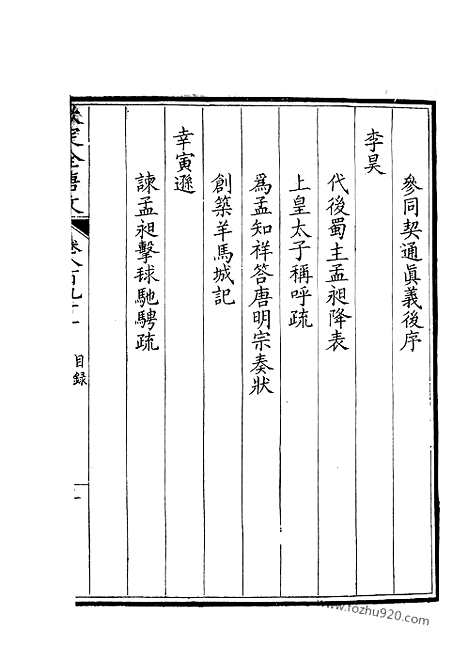 參同契通眞義後序
李昊
代後蜀主孟昶降表
上皇太子稱呼疏
爲孟知祥答唐明宗奏狀
創築羊馬城記
幸寅遜
諫孟昶擊球馳騁疏
欽定全唐文
目錄
www.fozhu920.com